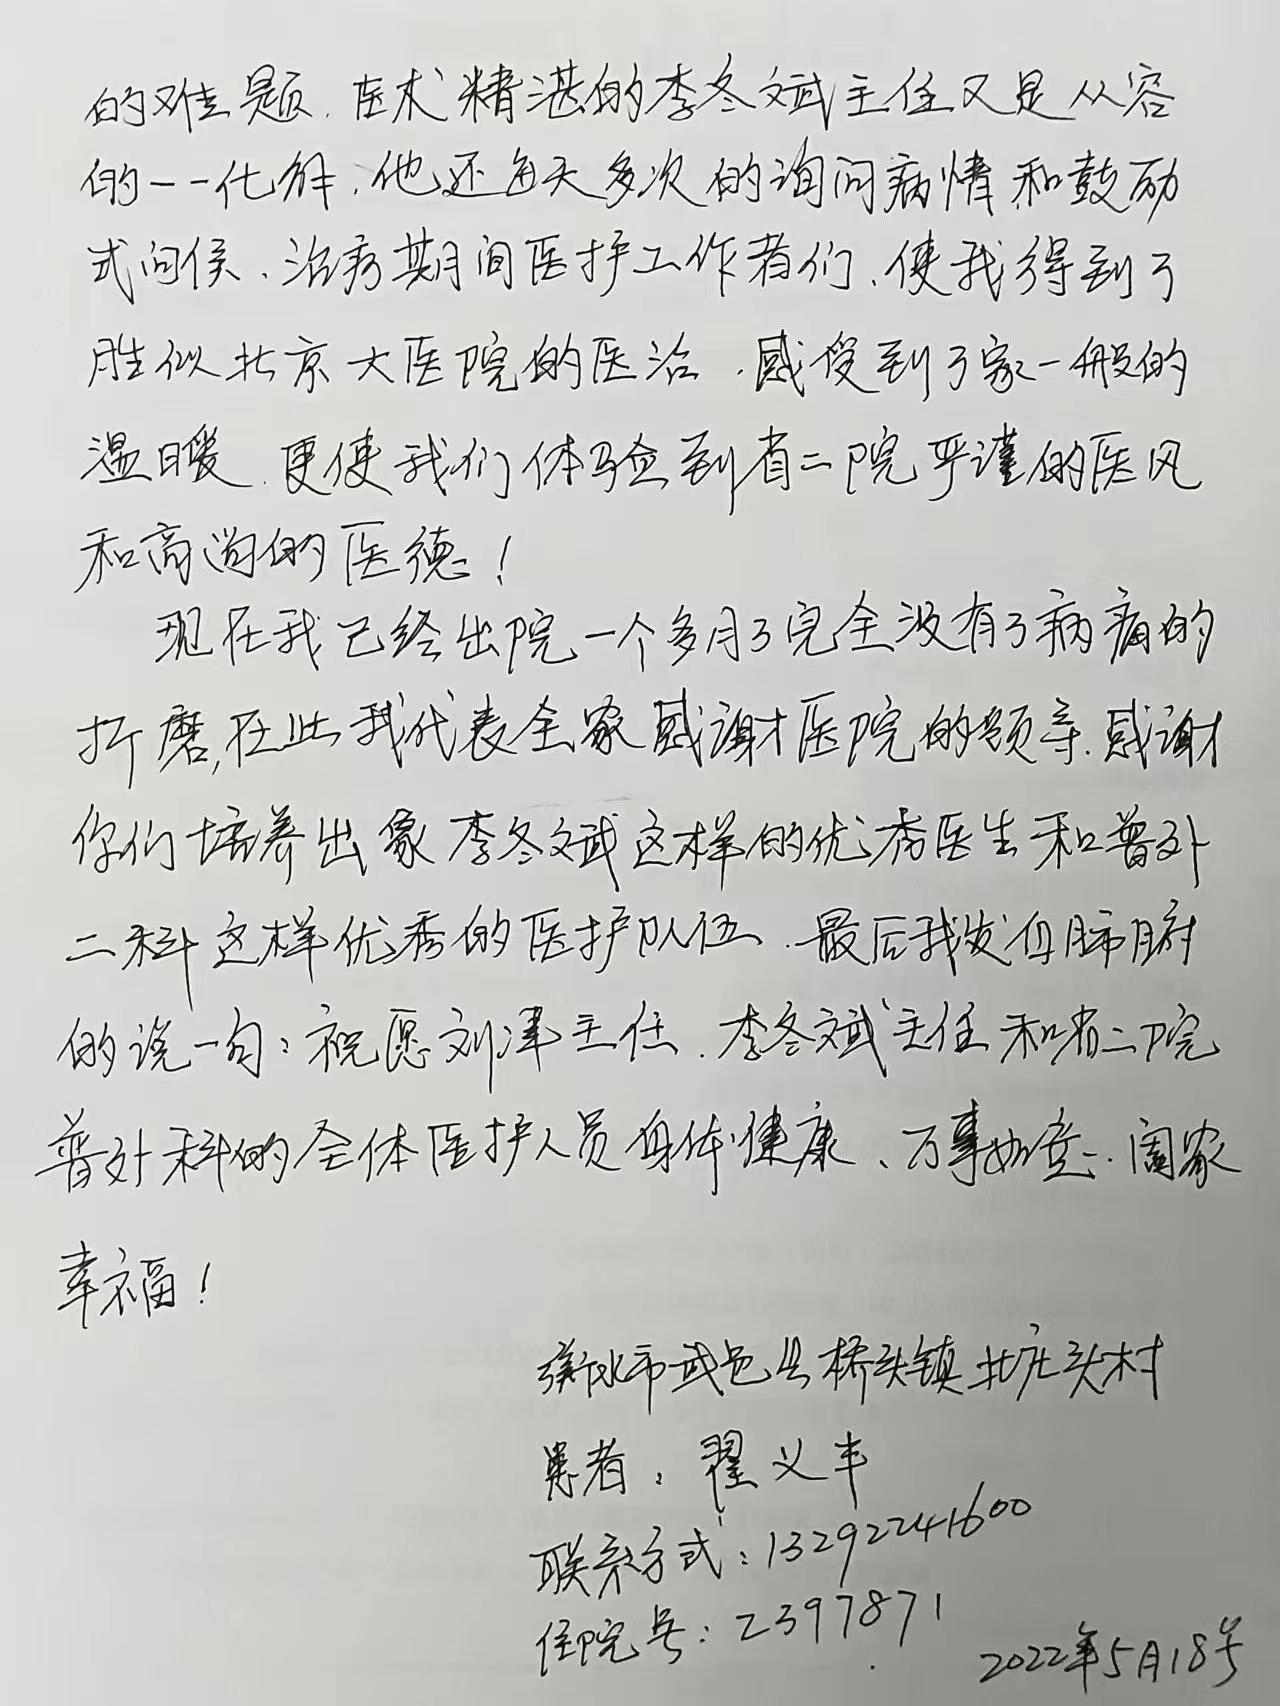 的难题。医术精湛的李冬斌主任又是从容
的一一化解，他还每天多次的询问病情和鼓励
式问侯、治疗期间医护工作者们，使我得到了
胜似北京大医院的医治，感受到了家一般的
温暖，更使我们体验到省二院严谨的医风
和高尚的医德！
现在我已经出院一个多月了完全没有了病痛的
折磨，在此我代表全家感谢医院的领导，感谢
你们培养出象李冬斌这样的优秀医生和普外
二科这样优秀的医护队伍，最后我发自肺腑
的说一句：祝愿刘津主任、李冬斌主任和省二院
普外科的全体医护人员身体健康、万事如意、阖家
幸福！
衡水市武邑县桥头镇北庄头村
患者：翟义丰
联系方式：13292241600
住院号：2397871
2022年5月18号